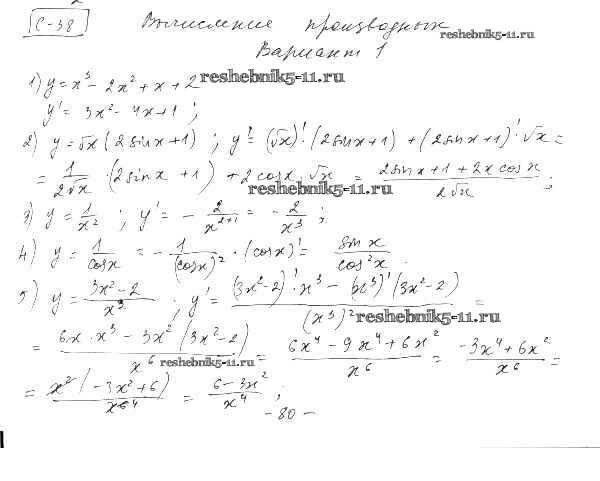 С-38 Вычисление производных
Вариант 1
reshebnik5-11.ru
1) y = x³ - 2x² + x + 2 reshebnik5-11.ru
y' = 3x² - 4x + 1 ;
2) y = √x (2sinx+1) ; y' = (√x)' · (2sinx+1) + (2sinx+1)' · √x =
= 1/(2√x) · (2sinx + 1) + 2cosx · √x = (2sinx + 1 + 2x cosx)/(2√x) ;
reshebnik5-11.ru
3) y = 1/x² ; y' = - 2/x²⁺¹ = - 2/x³ ;
4) y = 1/cosx = - 1/(cosx)² · (cosx)' = sinx/cos²x .
5) y = (3x² - 2)/x³ ; y' = ((3x²-2)' · x³ - (x³)' (3x²-2))/(x³)² =
reshebnik5-11.ru
= (6x · x³ - 3x² (3x²-2))/x⁶ = (6x⁴ - 9x⁴ + 6x²)/x⁶ = (-3x⁴ + 6x²)/x⁶ =
reshebnik5-11.ru
= x² (-3x² + 6)/x⁶ ⁴ = (6 - 3x²)/x⁴ ;
- 80 -